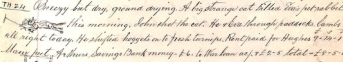 TH 24. Breezy but dry, ground drying. A big strange cat killed Eva's pet rabbit
this morning. John shot the cot. He ran through paddock. Lambs
all right today. He shifted hoggets on to fresh turnips. Rent paid for Hughes £ -
Mount put. Savings Bank money - £6. to as £ 2-5- Total = £8-5-